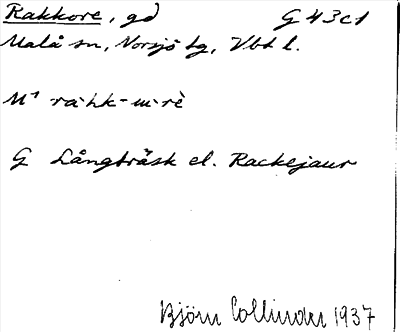 Rakkore, gd G 43c1
Malå sn, Norsjö tg, Vbt l.
G Långträsk el. Rackejaur
Björn Collinder 1937